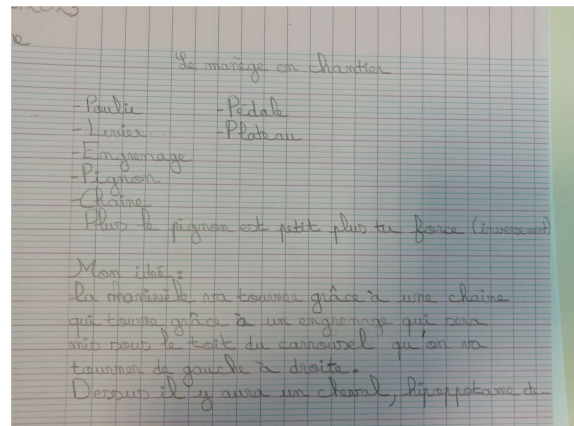 Le manège en chantier
- Poulie - Pédale
- Levier - Plateau
- Engrenage
- Pignon
- Chaîne
Plus le pignon est petit plus tu force (inversement)
Mon idée :
La manivelle va tourner grâce à une chaine
qui tourne grâce à un engrenage qui sera
mis sous le toit du carrousel qu'on va
tourner de gauche à droite.
Dessus il y aura un cheval, hipoppotame etc...